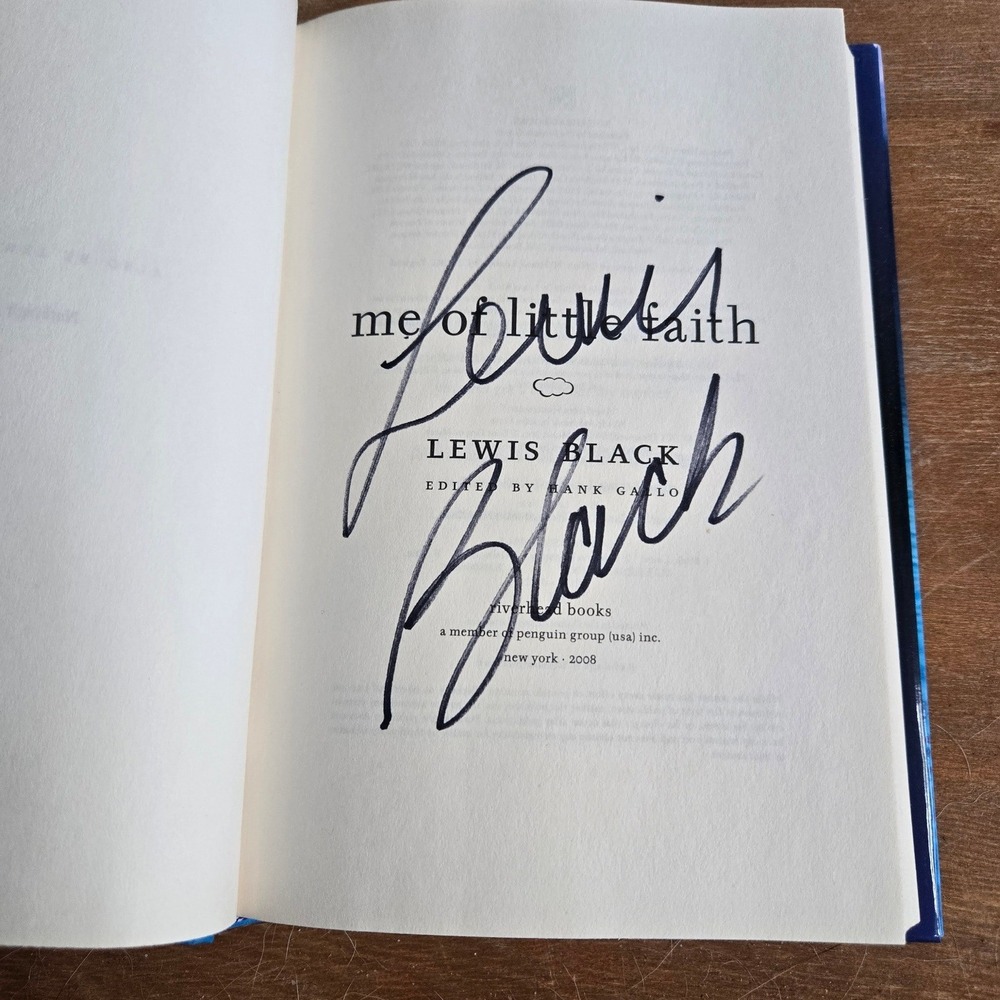 me of little faith
LEWIS BLACK
EDITED BY HANK GALLO
Lewis
Black
riverhead books
a member of penguin group (usa) inc.
new york · 2008